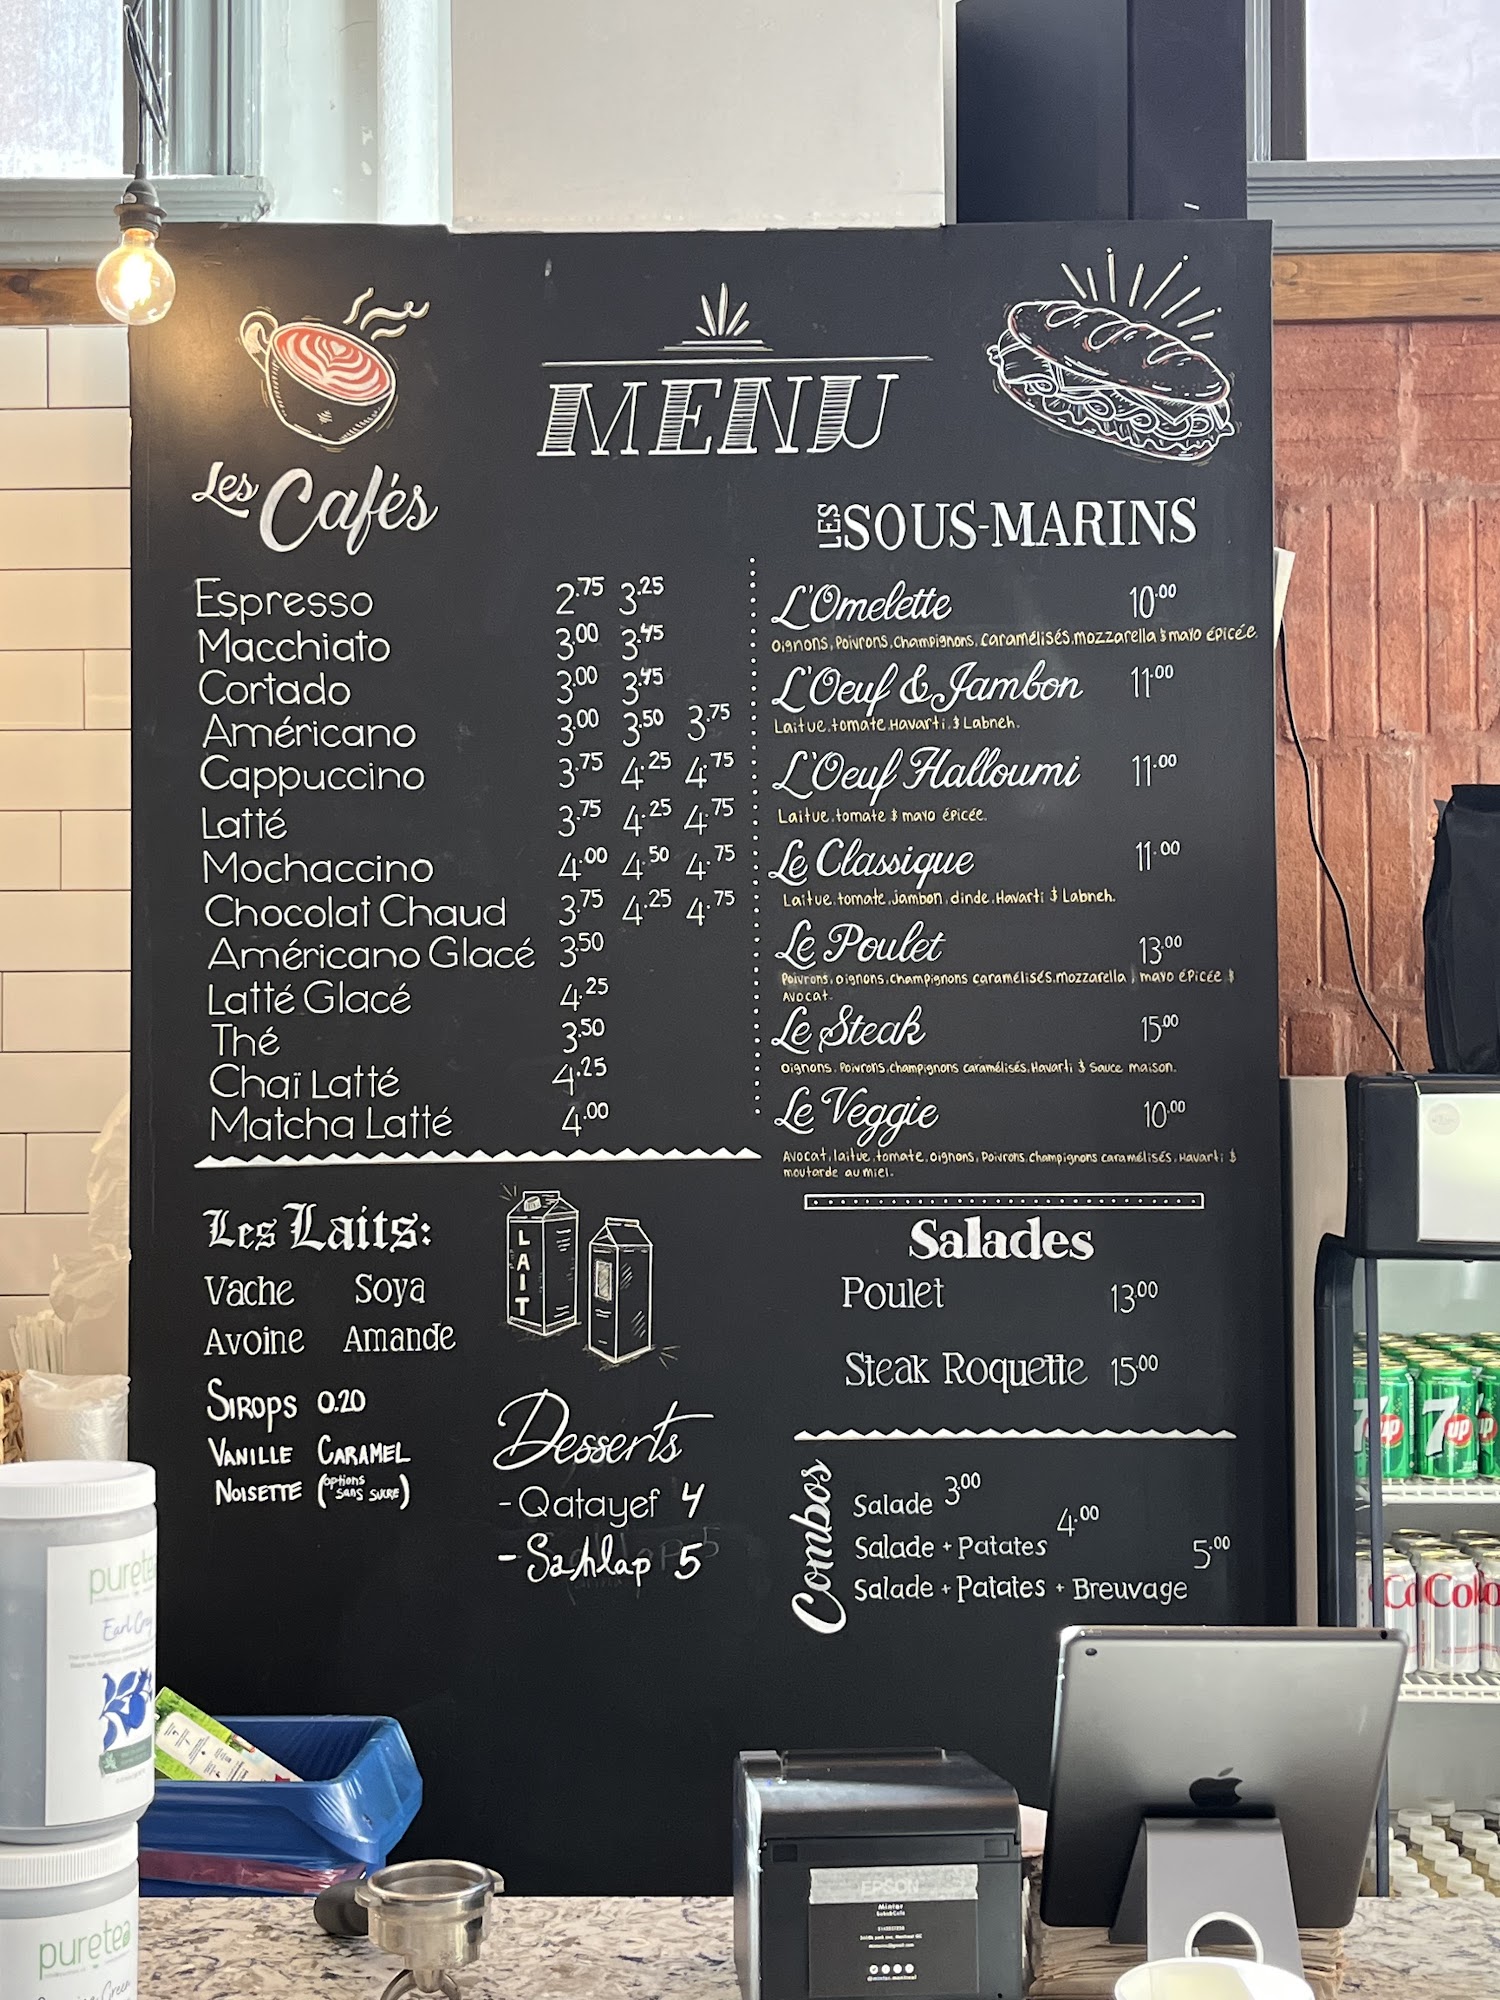 MENU
Les Cafés
Espresso 2.75 3.25
Macchiato 3.00 3.45
Cortado 3.00 3.45
Américano 3.00 3.50 3.75
Cappuccino 3.75 4.25 4.75
Latté 3.75 4.25 4.75
Mochaccino 4.00 4.50 4.75
Chocolat Chaud 3.75 4.25 4.75
Américano Glacé 3.50
Latté Glacé 4.25
Thé 3.50
Chaï Latté 4.25
Matcha Latté 4.00
Les Laits:
Vache Soya
Avoine Amande
LAIT
Sirops 0.20
Vanille Caramel
Noisette (options sans sucre)
Desserts
-Qatayef 4
-Sahlap 5
LES SOUS-MARINS
L'Omelette 10.00
Oignons, Poivrons, Champignons, caramélisés, mozzarella & mayo épicée.
L'Oeuf & Jambon 11.00
Laitue, tomate, Havarti & Labneh.
L'Oeuf Halloumi 11.00
Laitue, tomate & mayo épicée.
Le Classique 11.00
Laitue, tomate, jambon, dinde, Havarti & Labneh.
Le Poulet 13.00
Poivrons, oignons, champignons caramélisés, mozzarella, mayo épicée &
Avocat.
Le Steak 15.00
Oignons, Poivrons, champignons caramélisés, Havarti & Sauce maison.
Le Veggie 10.00
Avocat, laitue, tomate, oignons, Poivrons, champignons caramélisés, Havarti &
moutarde au miel.
Salades
Poulet 13.00
Steak Roquette 15.00
Combos
Salade 3.00
Salade + Patates 4.00
Salade + Patates + Breuvage 5.00
7up
7up
Coke
puretea
Earl Grey
puretea
Green
EPSON